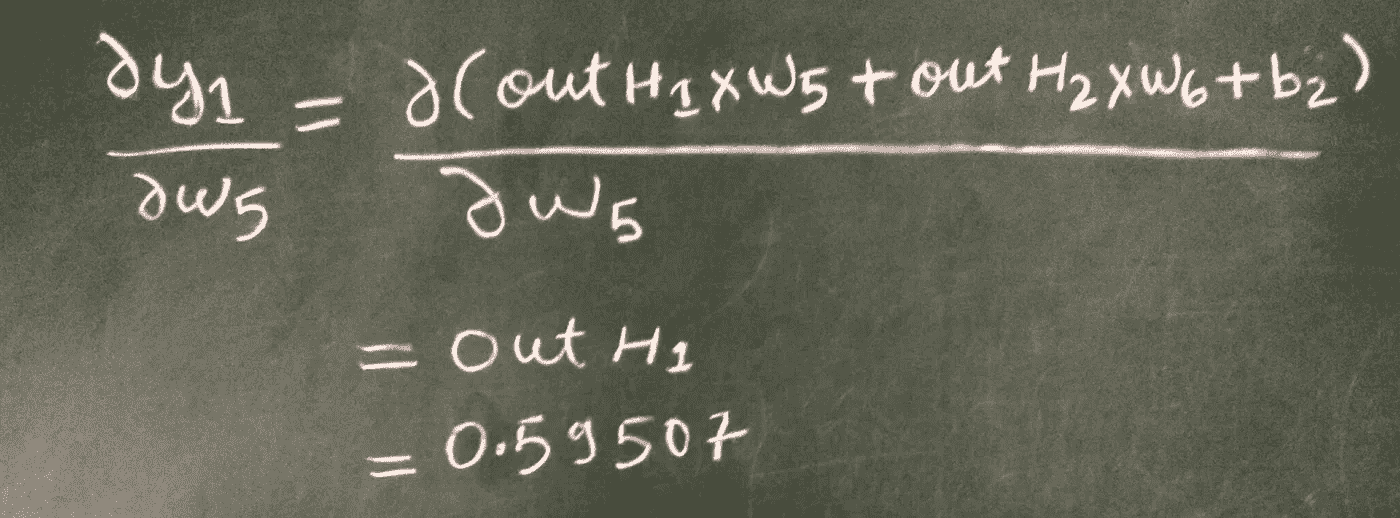 ∂y₁/∂w₅ = ∂(out H₁×w₅ + out H₂×w₆+b₂)/∂w₅
= out H₁
= 0.59507